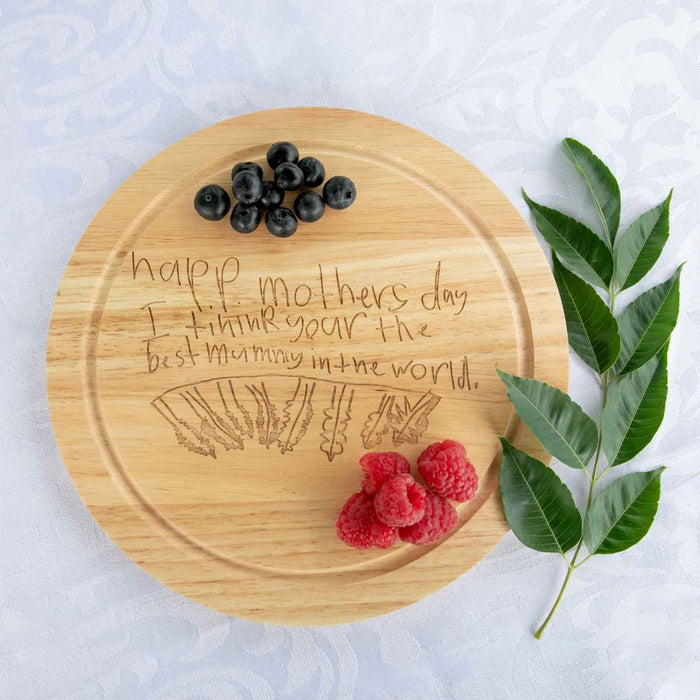 happ. mothers day
I thinkR your the
best mummy in the world.